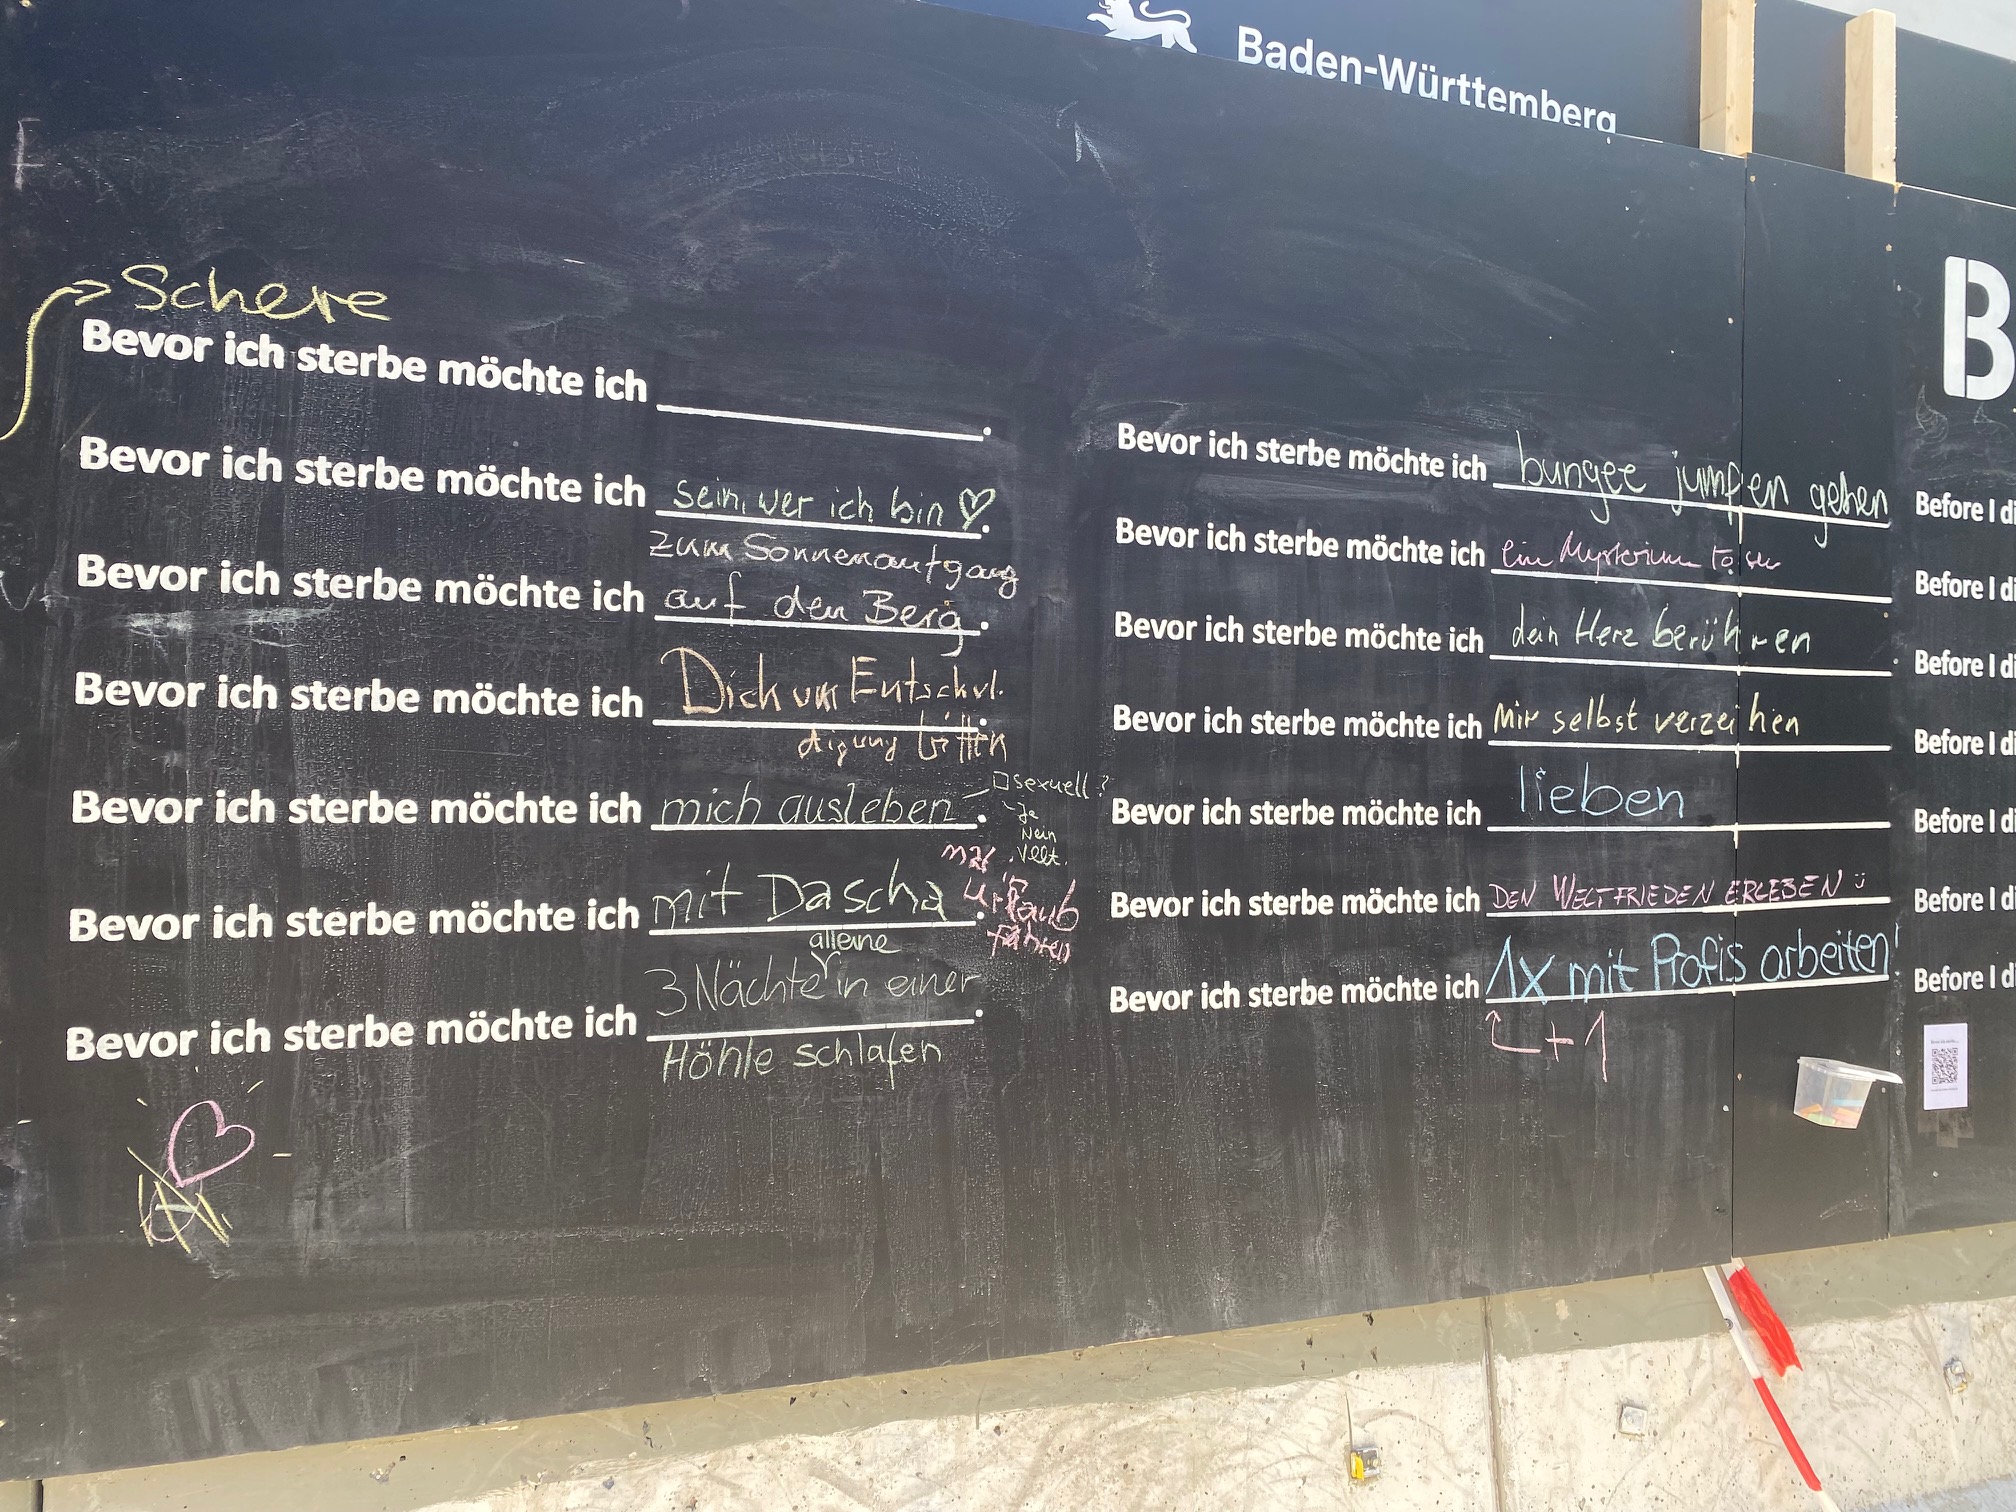 Baden-Württemberg
Schere
Bevor ich sterbe möchte ich
Bevor ich sterbe möchte ich sein, wer ich bin
zum Sonnenaufgang
Bevor ich sterbe möchte ich auf den Berg.
Bevor ich sterbe möchte ich Dich um Entschul.
digung bitten
Bevor ich sterbe möchte ich mich ausleben
sexuell?
Ja
Nein
Vllt.
Bevor ich sterbe möchte ich mit Dascha
mal in
Urlaub
fahren
alleine
3 Nächte in einer
Bevor ich sterbe möchte ich
Höhle schlafen
Bevor ich sterbe möchte ich bungee jumpen gehen
Bevor ich sterbe möchte ich ein Mysterium
Bevor ich sterbe möchte ich dein Herz berühren
Bevor ich sterbe möchte ich Mir selbst verzeihen
Bevor ich sterbe möchte ich lieben
Bevor ich sterbe möchte ich DEN WELTFRIEDEN ERLEBEN
Bevor ich sterbe möchte ich 1x mit Profis arbeiten!
+1
B
Before I di
Before I di
Before I di
Before I di
Before I di
Before I di
Before I di